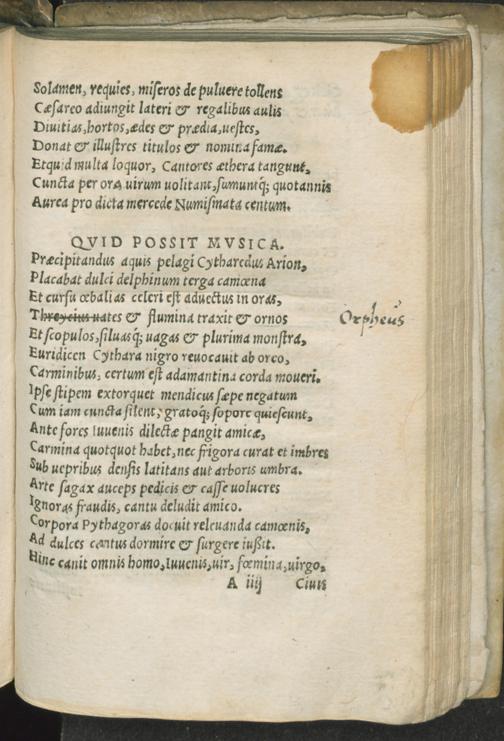 Solamen, requies, miseros de puluere tollens
Cæsareo adiungit lateri & regalibus aulis
Diuitias, hortos, ædes & prædia, uestes,
Donat & illustres titulos & nomina famæ.
Etquid multa loquor, Cantores æthera tangunt,
Cuncta per ora uirum uolitant, sumuntq; quotannis
Aurea pro dicta mercede Numismata centum.
QVID POSSIT MVSICA.
Præcipitandus aquis pelagi Cytharedus Arion,
Placabat dulci delphinum terga camœna
Et cursu œbalias celeri est aduectus in oras,
Threycius uates & flumina traxit & ornos
Orpheus
Et scopulos, siluasq; uagas & plurima monstra,
Euridicen Cythara nigro reuocauit ab orco,
Carminibus, certum est adamantina corda moueri.
Ipse stipem extorquet mendicus sæpe negatum
Cum iam cuncta silent, gratoq; sopore quiescunt,
Ante fores Iuuenis dilectæ pangit amicæ,
Carmina quotquot habet, nec frigora curat et imbres
Sub uepribus densis latitans aut arboris umbra.
Arte sagax auceps pedicis & casse uolucres
Ignoras fraudis, cantu deludit amico.
Corpora Pythagoras docuit releuanda camœnis,
Ad dulces cantus dormire & surgere iußit.
Hinc canit omnis homo, Iuuenis, uir, fœmina, uirgo,
A iiij Ciuis